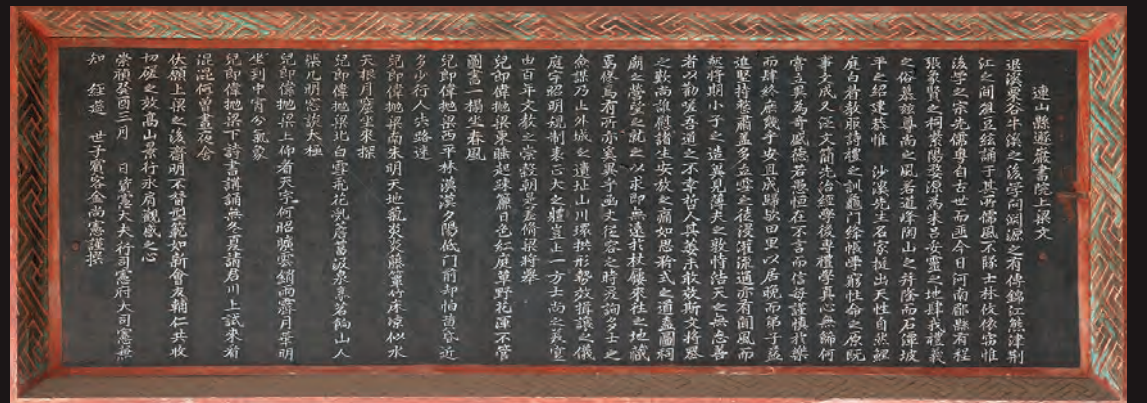 連山縣遯巖書院上樑文
退溪栗谷牛溪之後學問淵源之有傳錦江熊津荆
江之間俎豆絃誦于其所儒風不隊士林攸係窃惟
後學之宗先儒粤自古世而亟今日河南郡縣有程
張象賢之祠紫陽婺源爲朱呂妥靈之地肆我禮義
之俗慕效尊尚之風若道峰陶山之幷隆而石潭坡
平之紹建恭惟 沙溪先生名家挺出天性自然鯉
庭白首敎服詩禮之訓龜門絳帳學窮性命之原既
事文成又從文簡先治經學後專禮學真心無飾何
嘗立異爲奇盛德若愚恒在不言而信每謹愼於樂
而肆終庶幾乎安且成歸歟田里以居晩而弟子益
進堅持整肅蓋多立雪之徒浸灌流通亦有聞風而
起將期小子之造奚見薄夫之敦恃天之無忘善
者以勸嗟吾道之不幸哲人其萎未敢效斯文將喪
之歎尚誰慰諸生安放之痛如思矜式之道盍圖祠
廟之營之就之以求即無遠於杖屨來往之地藏
焉修焉有所亦莫異乎函丈從容之時爰詢多士之
僉謀乃止外城之遺址山川環拱形勢效揖讓之儀
庭宇昭明規制表正大之體豈止一方士尚之美室
由百年文敎之崇穀朝是差脩樑將擧
兒郎偉抛梁東睡起踈簾日色紅庭草野花渾不管
圖書一榻坐春風
兒郎偉抛梁西平林漠漠夕陽低門前却怕黃昏近
多少行人失路迷
兒郎偉抛梁南朱明天地氣炎炎簟竹床凉似水
天根月窟坐來探
兒郎偉抛梁北白雪飛花山人
棐几明窓談太極
兒郎偉抛梁上仰看天宇何昭曠雲銷雨霽月華明
坐到中宵分氣象
兒郎偉抛梁下詩書講誦無冬夏請君川上試來看
混混何曾晝夜舍
伏願上樑之後齋明不昏刑範如新會友輔仁共收
切磋之效高山景行永肩觀感之心
崇禎癸酉三月 日資憲大夫行司憲府大司憲兼
知 經筵 世子賓客金尚憲謹撰